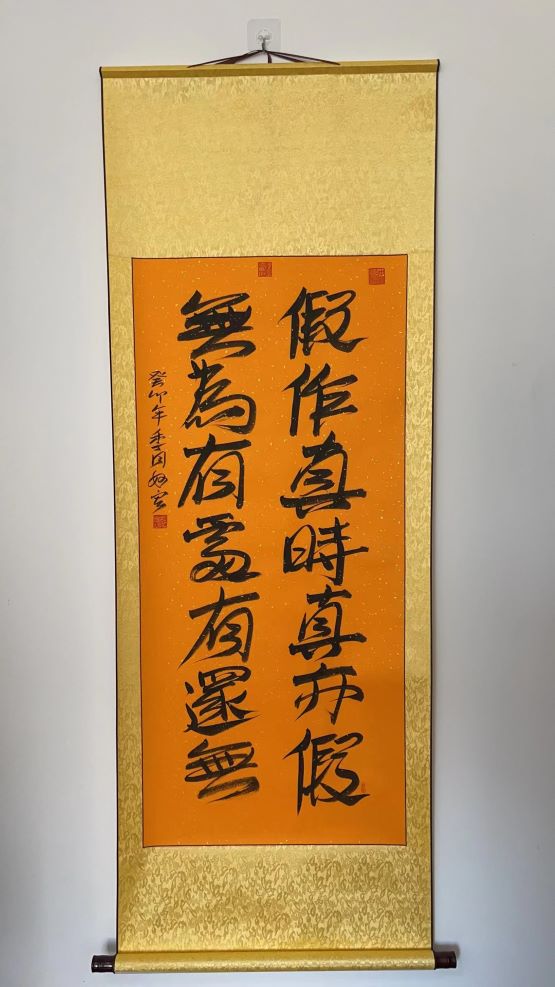 假作真時真亦假
無為有處有還無
癸卯年